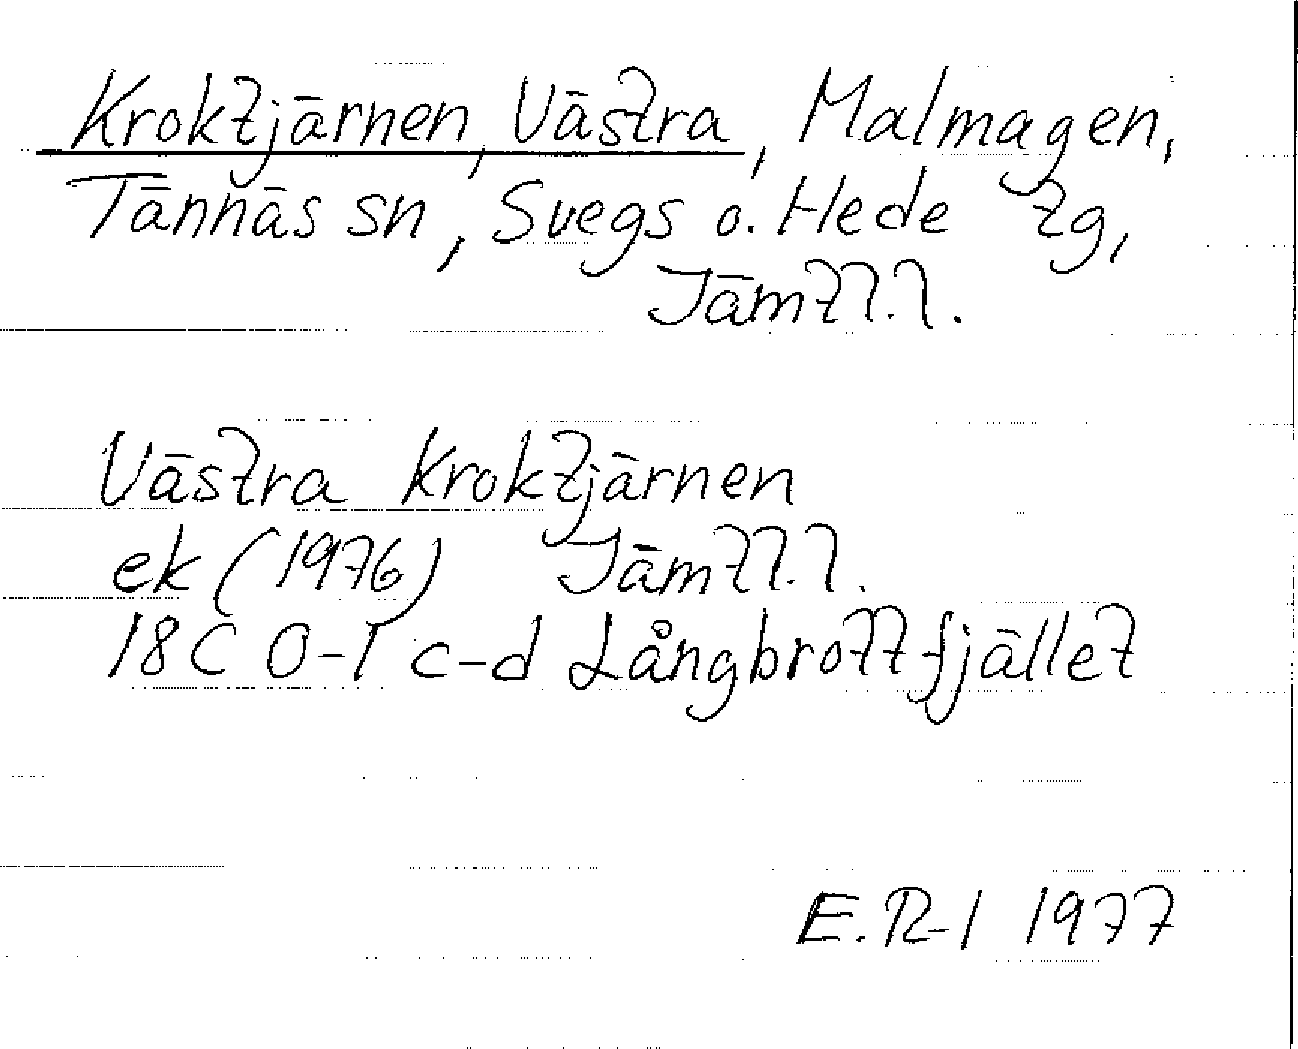 Kroktjärnen, Västra, Malmagen,
Tännäs sn, Svegs o. Hede tg,
Jämtl. l.
Västra Kroktjärnen
ek (1976) Jämtl. l.
18C 0-1 c-d Långbrottfjället
E. R-l 1977